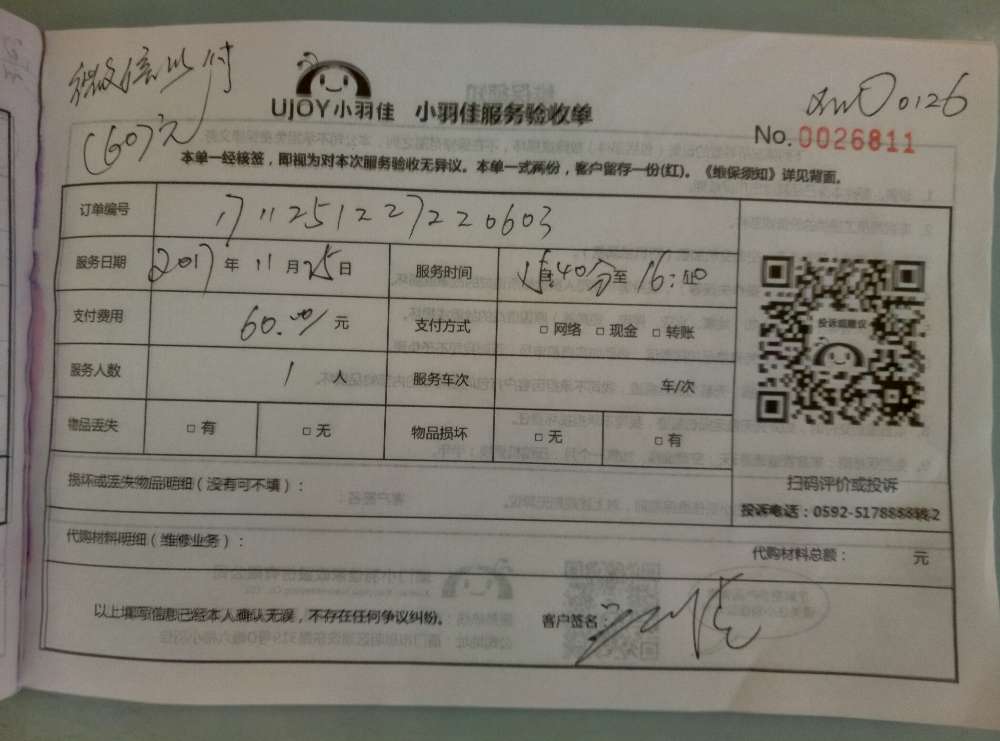 微信支付
(60)元
0126
UJOY小羽佳 小羽佳服务验收单
No. 0026811
本单一经核签，即视为对本次服务验收无异议。本单一式两份，客户留存一份(红)。《维保须知》详见背面。
订单编号 1711251227220603
服务日期 2017年11月25日 服务时间 40分至16:
支付费用 60.00元 支付方式 □网络 □现金 □转账
服务人数 1人 服务车次 车/次
物品丢失 □有 □无 物品损坏 □无 □有
投诉或建议
扫码评价或投诉
损坏或丢失物品明细（没有可不填）：
投诉电话：0592-5178888转2
代购材料明细（维修业务）：
代购材料总额： 元
以上填写信息已经本人确认无误，不存在任何争议纠纷。 客户签名：